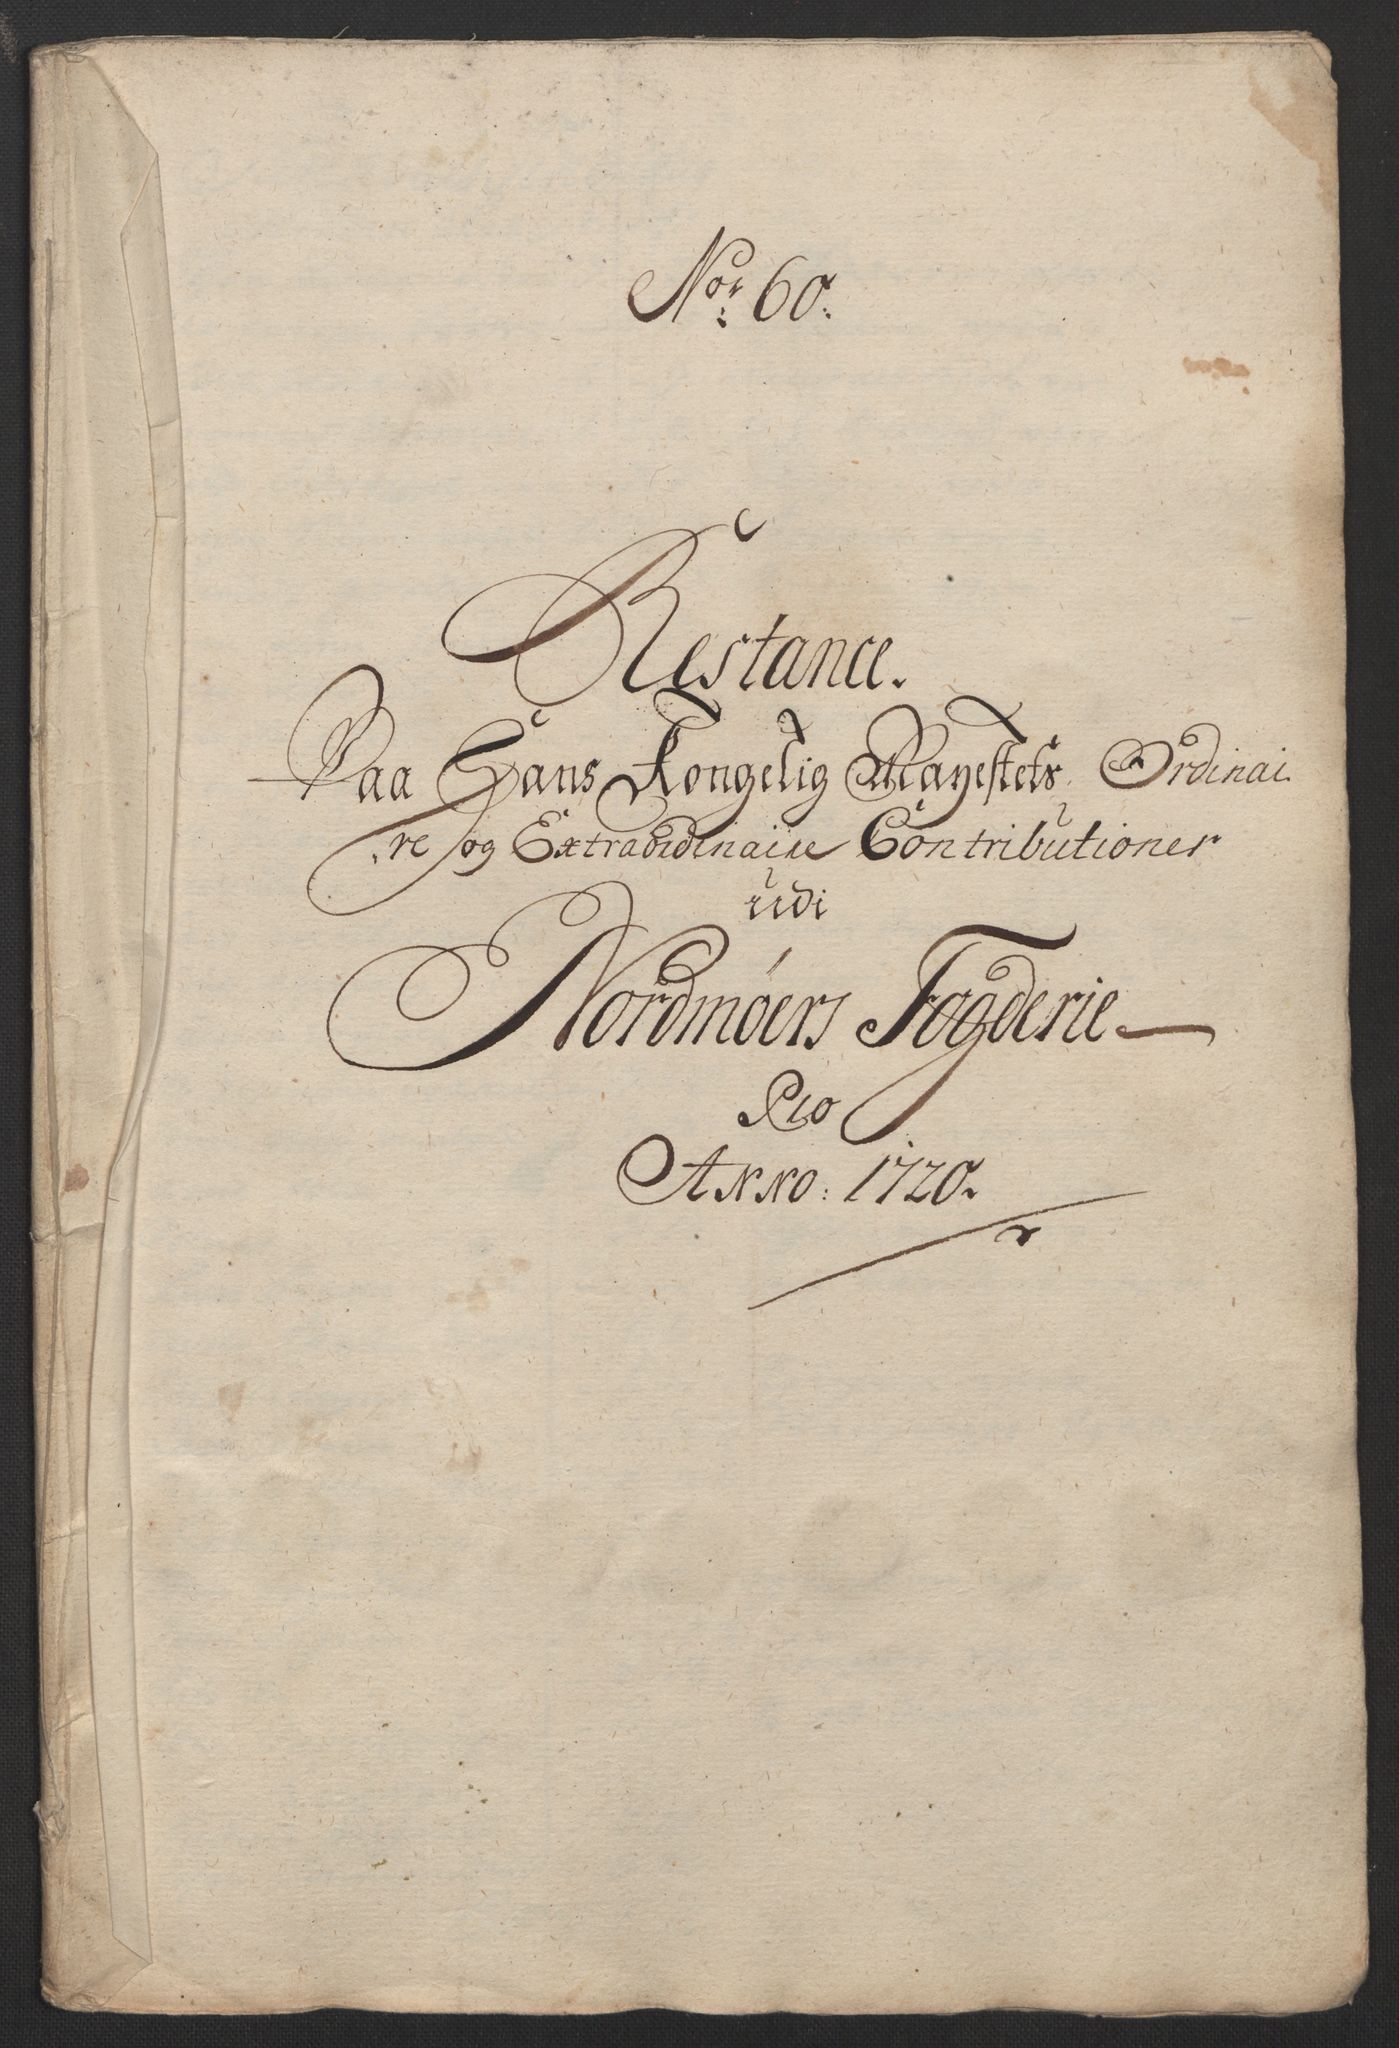 Nor: 60.
Restance.
Paa Hans Kongelig Mayestets Ordinai
re og Extraordinaire Contributioner
udi
Nordmøers Fogderie
Pro
Anno: 1720.